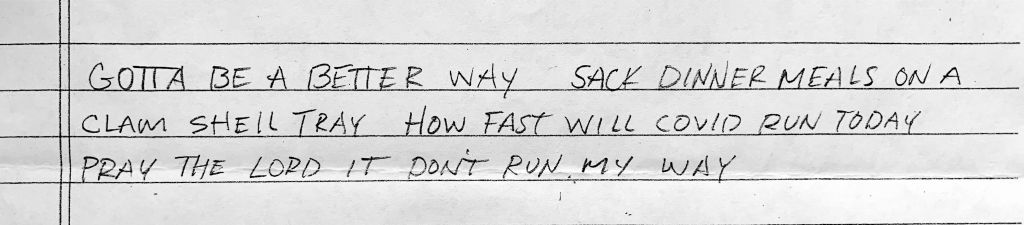 GOTTA BE A BETTER WAY SACK DINNER MEALS ON A
CLAM SHELL TRAY HOW FAST WILL COVID RUN TODAY
PRAY THE LORD IT DON'T RUN MY WAY